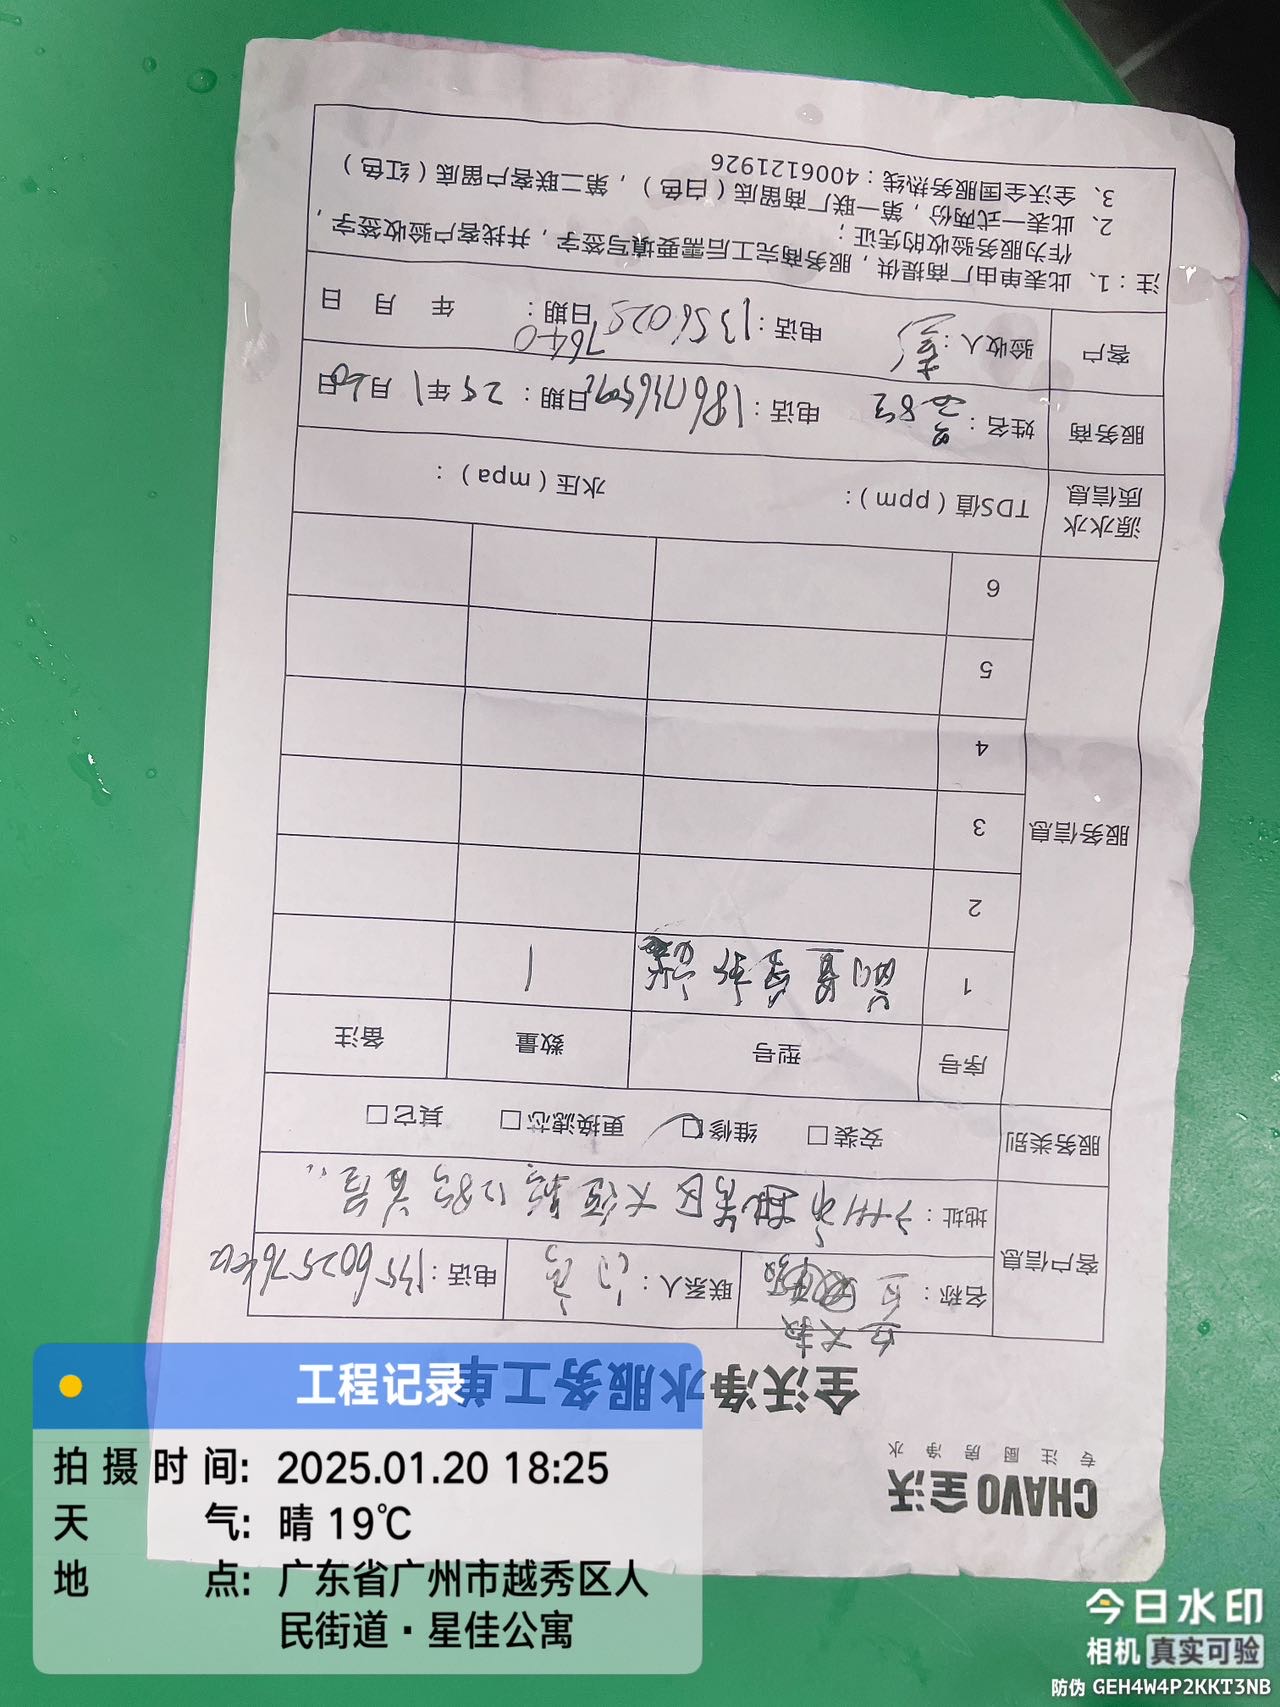 CHAVO 全沃
专注厨房净水
全沃净水服务工单
客户信息
名称：
联系人：
电话：13560257640
地址：广州市越秀区大德路 号首层
服务类别
安装□ 维修□ 更换滤芯□ 其它□
服务信息
序号 型号 数量 备注
1 1
2
3
4
5
6
源水水质信息
TDS值（ppm）： 水压（mpa）：
服务商
姓名： 电话： 日期：25年1月20日
客户
验收人： 电话：13560257640 日期： 年 月 日
注：1、此表单由厂商提供，服务商完工后需要填写签字，并找客户验收签字，
作为服务验收的凭证；
2、此表一式两份，第一联厂商留底（白色），第二联客户留底（红色）
3、全沃全国服务热线：4006121926
工程记录
拍摄时间：2025.01.20 18:25
天气：晴 19℃
地点：广东省广州市越秀区人
民街道·星佳公寓
今日水印
相机 真实可验
防伪 GEH4W4P2KKT3NB